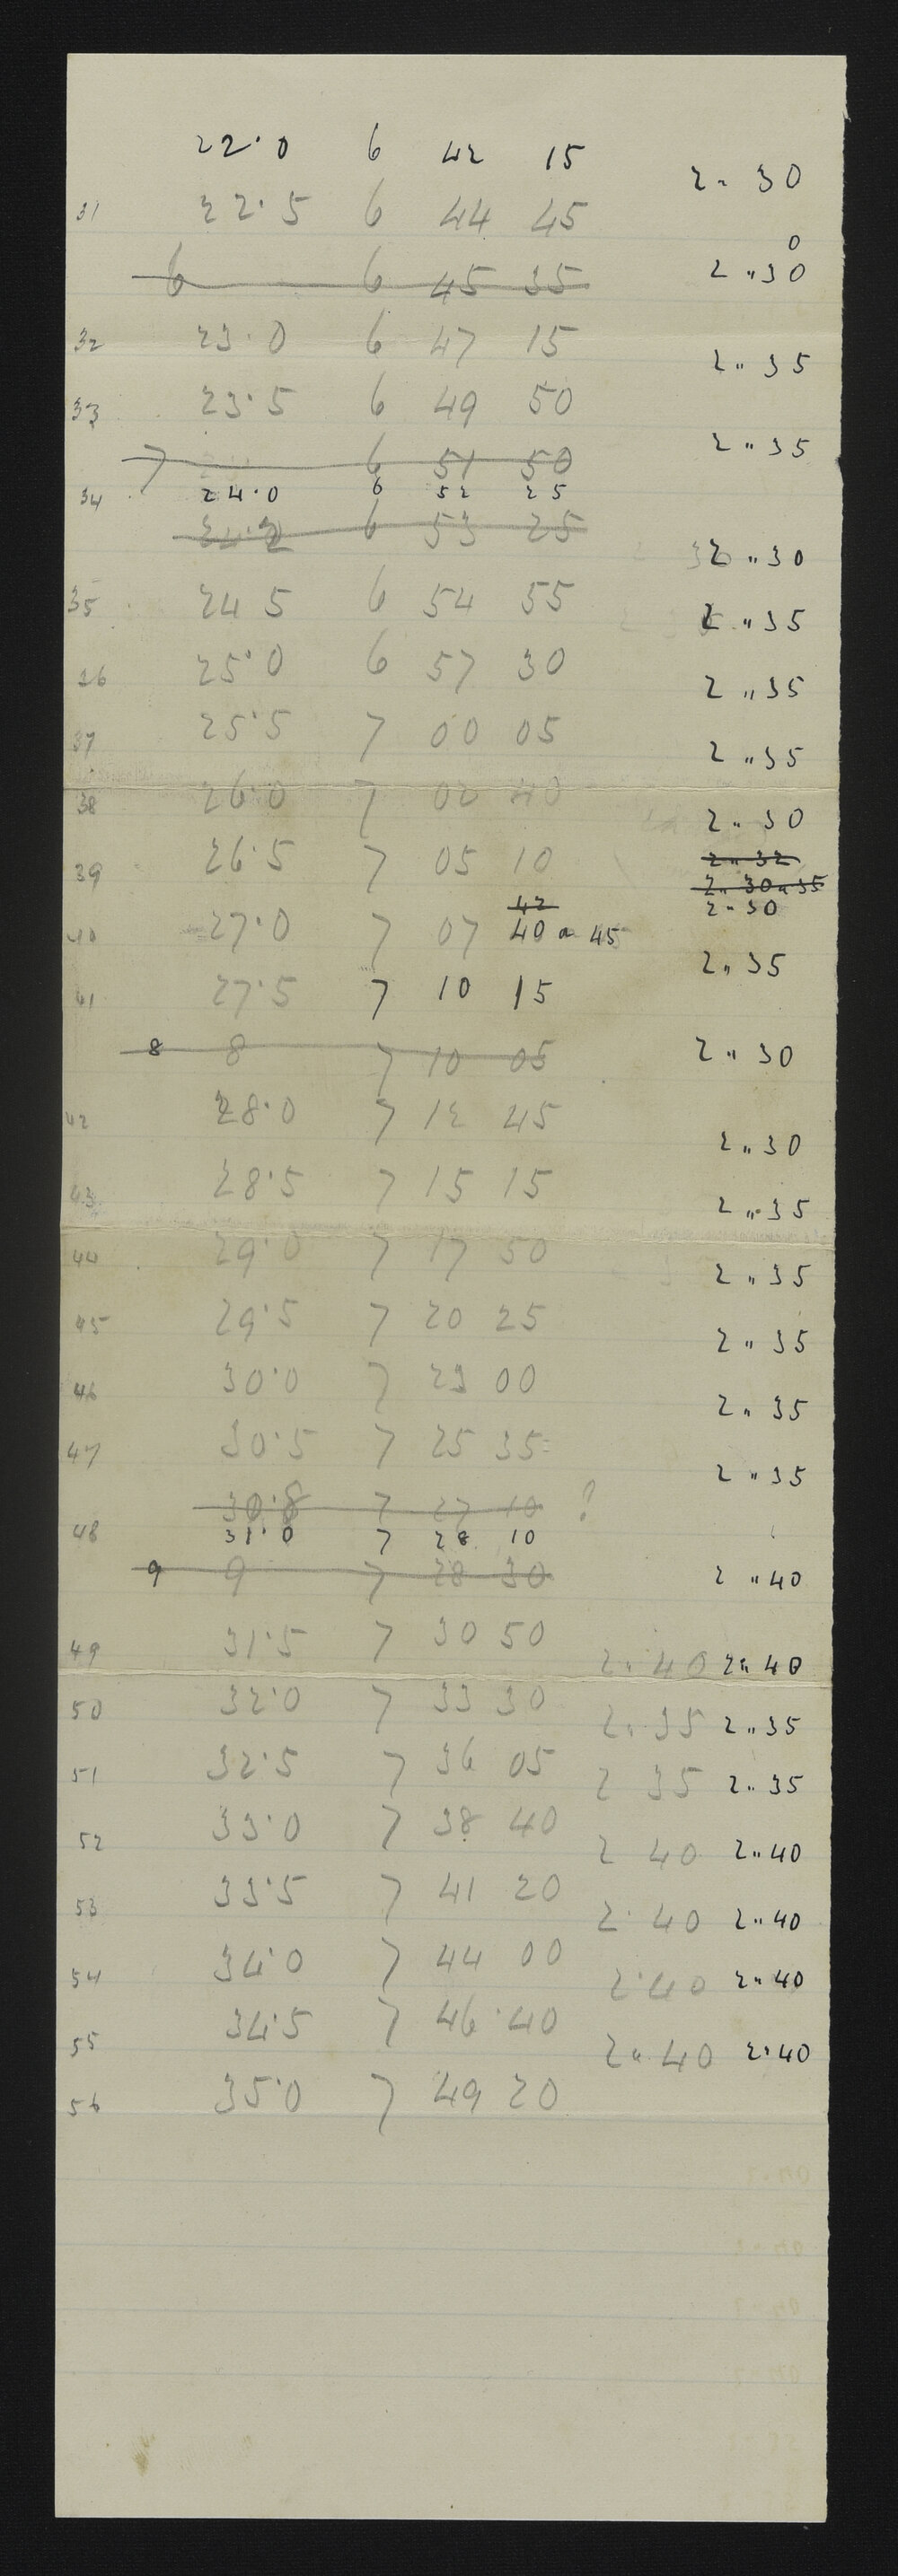 22·0 6 42 15
2 " 30
31 22·5 6 44 45
0
6 6 45 35 2 " 30
32 23·0 6 47 15
2 " 35
33 23·5 6 49 50
7 6 51 50 2 " 35
34 24·0 6 52 25
6 53 25
2 " 30
35 24 5 6 54 55
2 " 35
36 25·0 6 57 30
2 " 35
37 25·5 7 00 05
2 " 35
38 26·0 7 02 40
2 " 30
39 26·5 7 05 10
2 " 32
2 " 30 " 35
42 2 " 30
40 27·0 7 07 40 or 45
2 " 35
41 27·5 7 10 15
8 8 7 10 05 2 " 30
42 28·0 7 12 45
2 " 30
43 28·5 7 15 15
2 " 35
44 29·0 7 17 50
2 " 35
45 29·5 7 20 25
2 " 35
46 30·0 7 23 00
2 " 35
47 30·5 7 25 35
2 " 35
30·8 7 27 10 ?
48 31·0 7 28 10
9 9 7 28 30 2 " 40
49 31·5 7 30 50
2 " 40 2 " 40
50 32·0 7 33 30
2 " 35 2 " 35
51 32·5 7 36 05
2 35 2 " 35
52 33·0 7 38 40
2 40 2 " 40
53 33·5 7 41 20
2 · 40 2 " 40
54 34·0 7 44 00
2·40 2 " 40
55 34·5 7 46·40
2 " 40 2 " 40
56 35·0 7 49 20